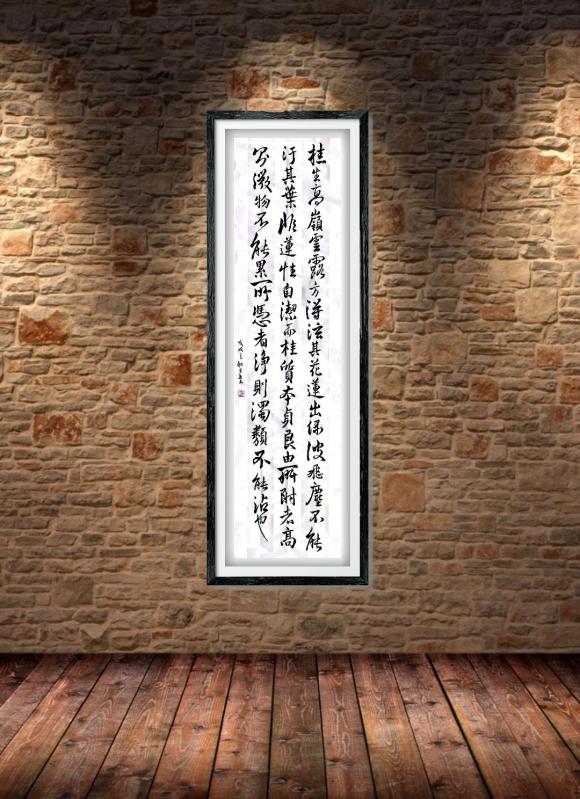 桂生高嶺雲露方得泫其花蓮出淥波飛塵不能
汙其葉非蓮性自潔而桂質本貞良由所附者高
則微物不能累所憑者淨則濁類不能沾也